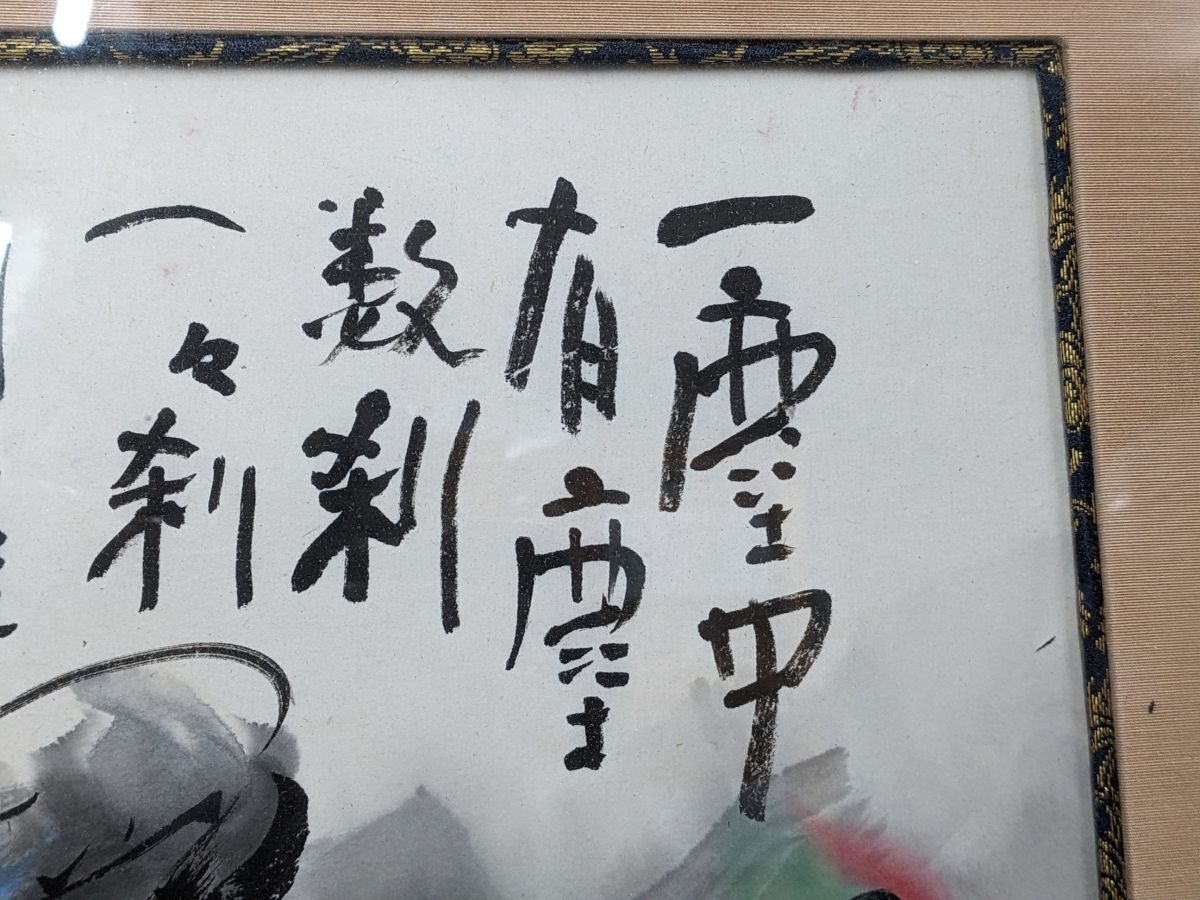 一塵中
有塵
数刹
一々刹